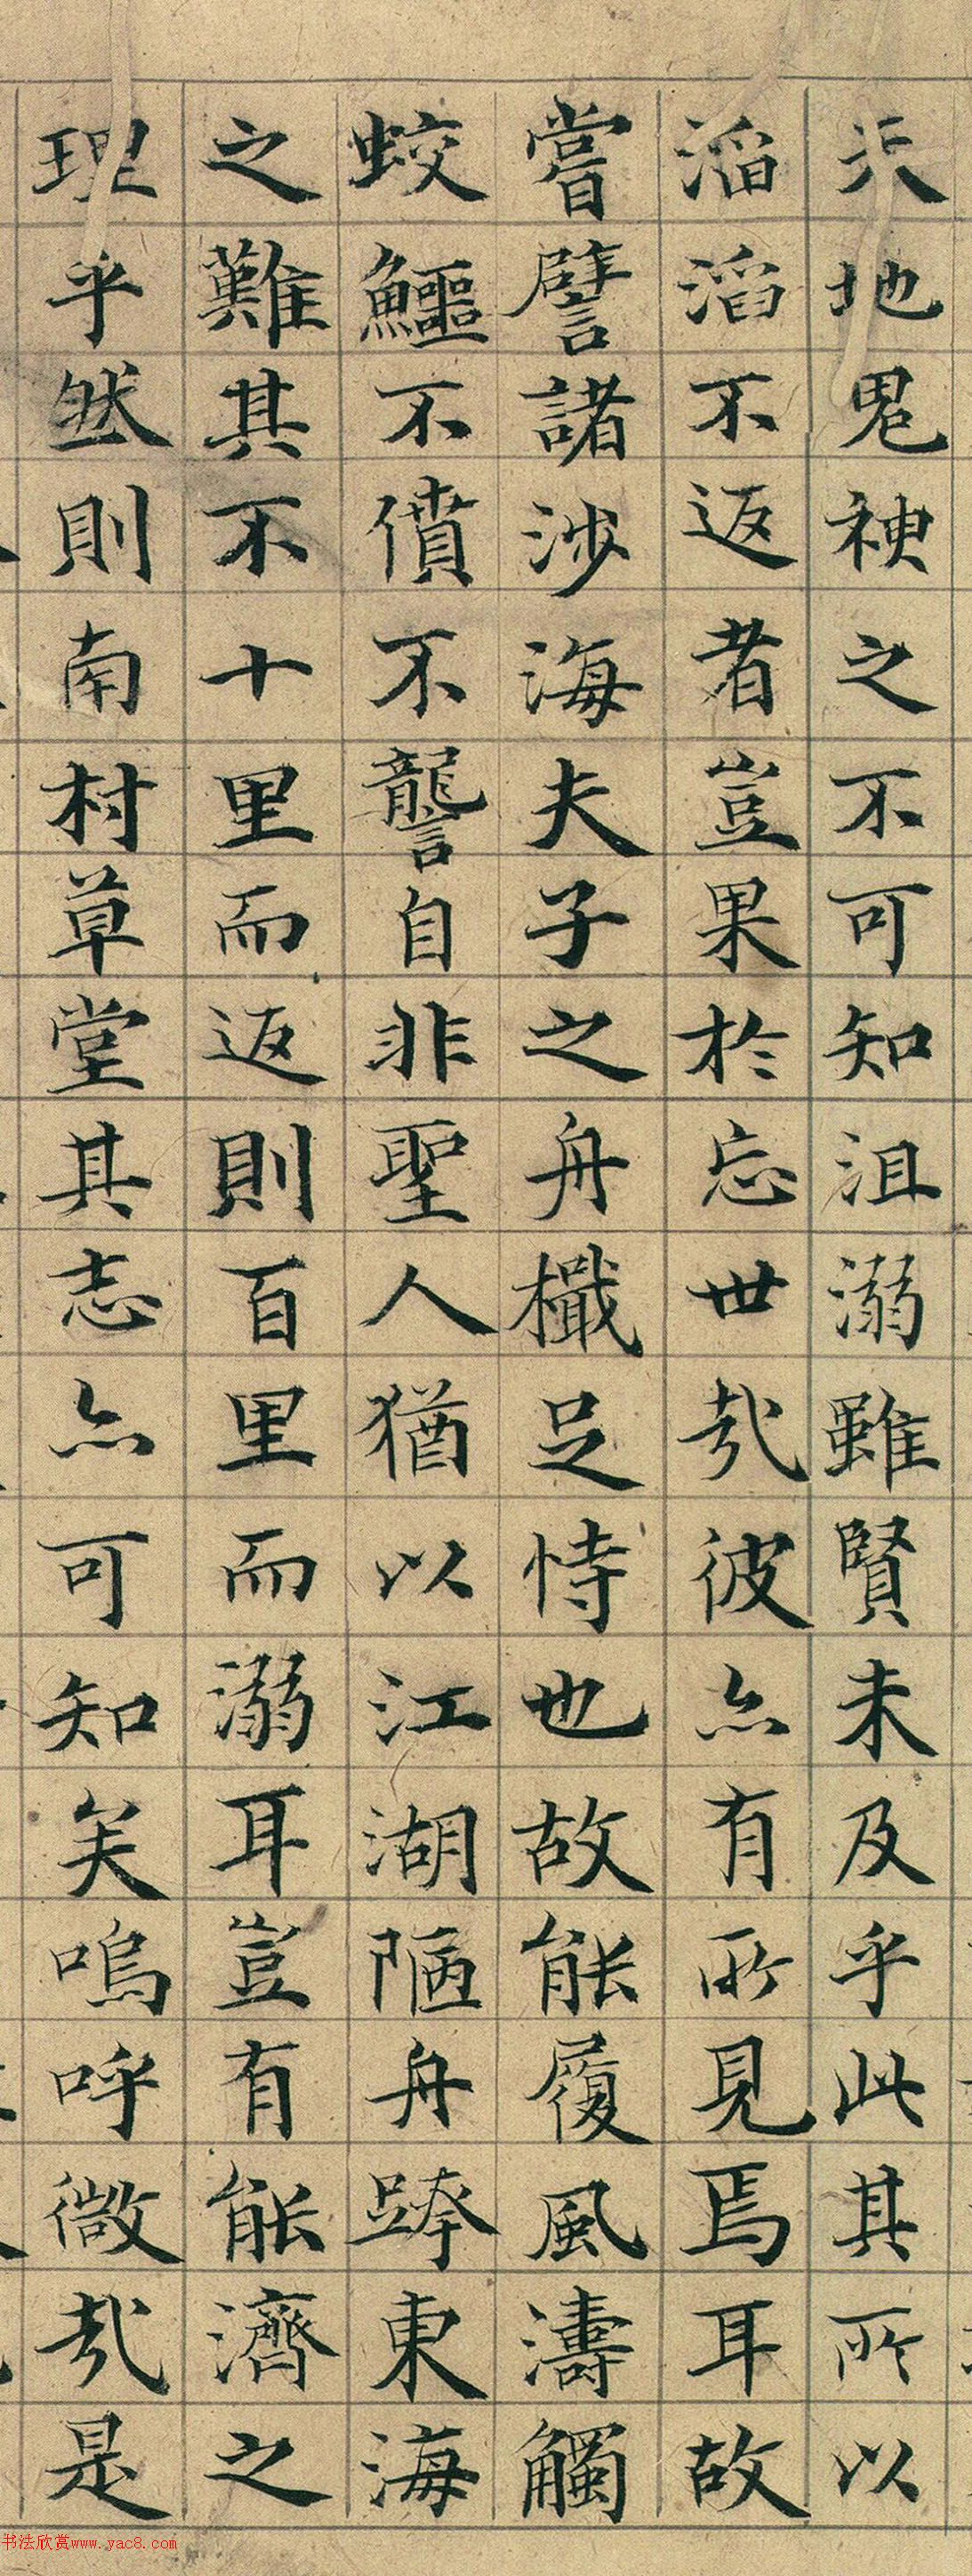 天地鬼神之不可知沮溺雖賢未及乎此其所以
滔滔不返者豈果於忘世哉彼亦有所見焉耳故
嘗譬諸涉海夫子之舟檝足恃也故能履風濤觸
蛟鱷不僨不讋自非聖人猶以江湖陋舟跨東海
之難其不十里而返則百里而溺耳豈有能濟之
理乎然則南村草堂其志亦可知矣嗚呼微哉是
书法欣赏www.yac8.com